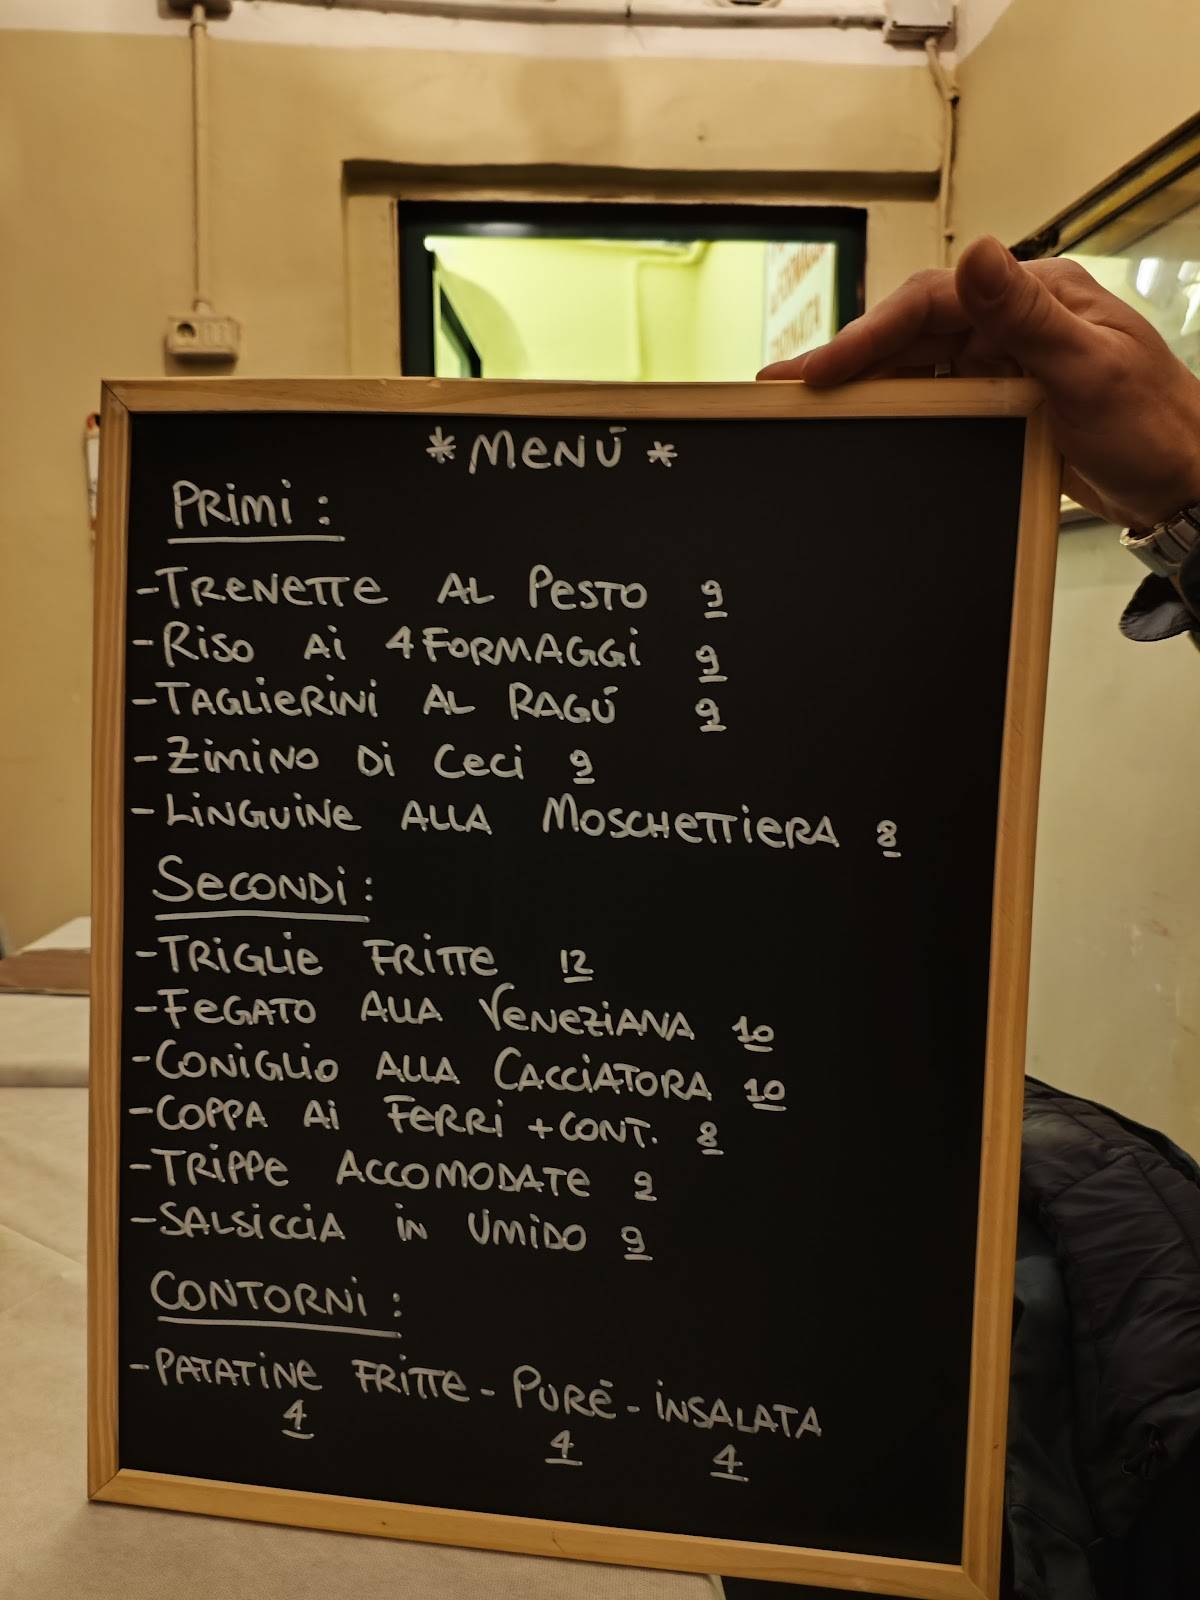 * MENÚ *
PRIMI:
- TRENETTE AL PESTO 9
- RISO AI 4 FORMAGGI 9
- TAGLIERINI AL RAGÚ 9
- ZIMINO DI CECI 9
- LINGUINE ALLA MOSCHETTIERA 8
SECONDI:
- TRIGLIE FRITTE 12
- FEGATO ALLA VENEZIANA 10
- CONIGLIO ALLA CACCIATORA 10
- COPPA AI FERRI + CONT. 8
- TRIPPE ACCOMODATE 9
- SALSICCIA IN UMIDO 9
CONTORNI:
- PATATINE FRITTE - PURÉ - INSALATA
4 4 4